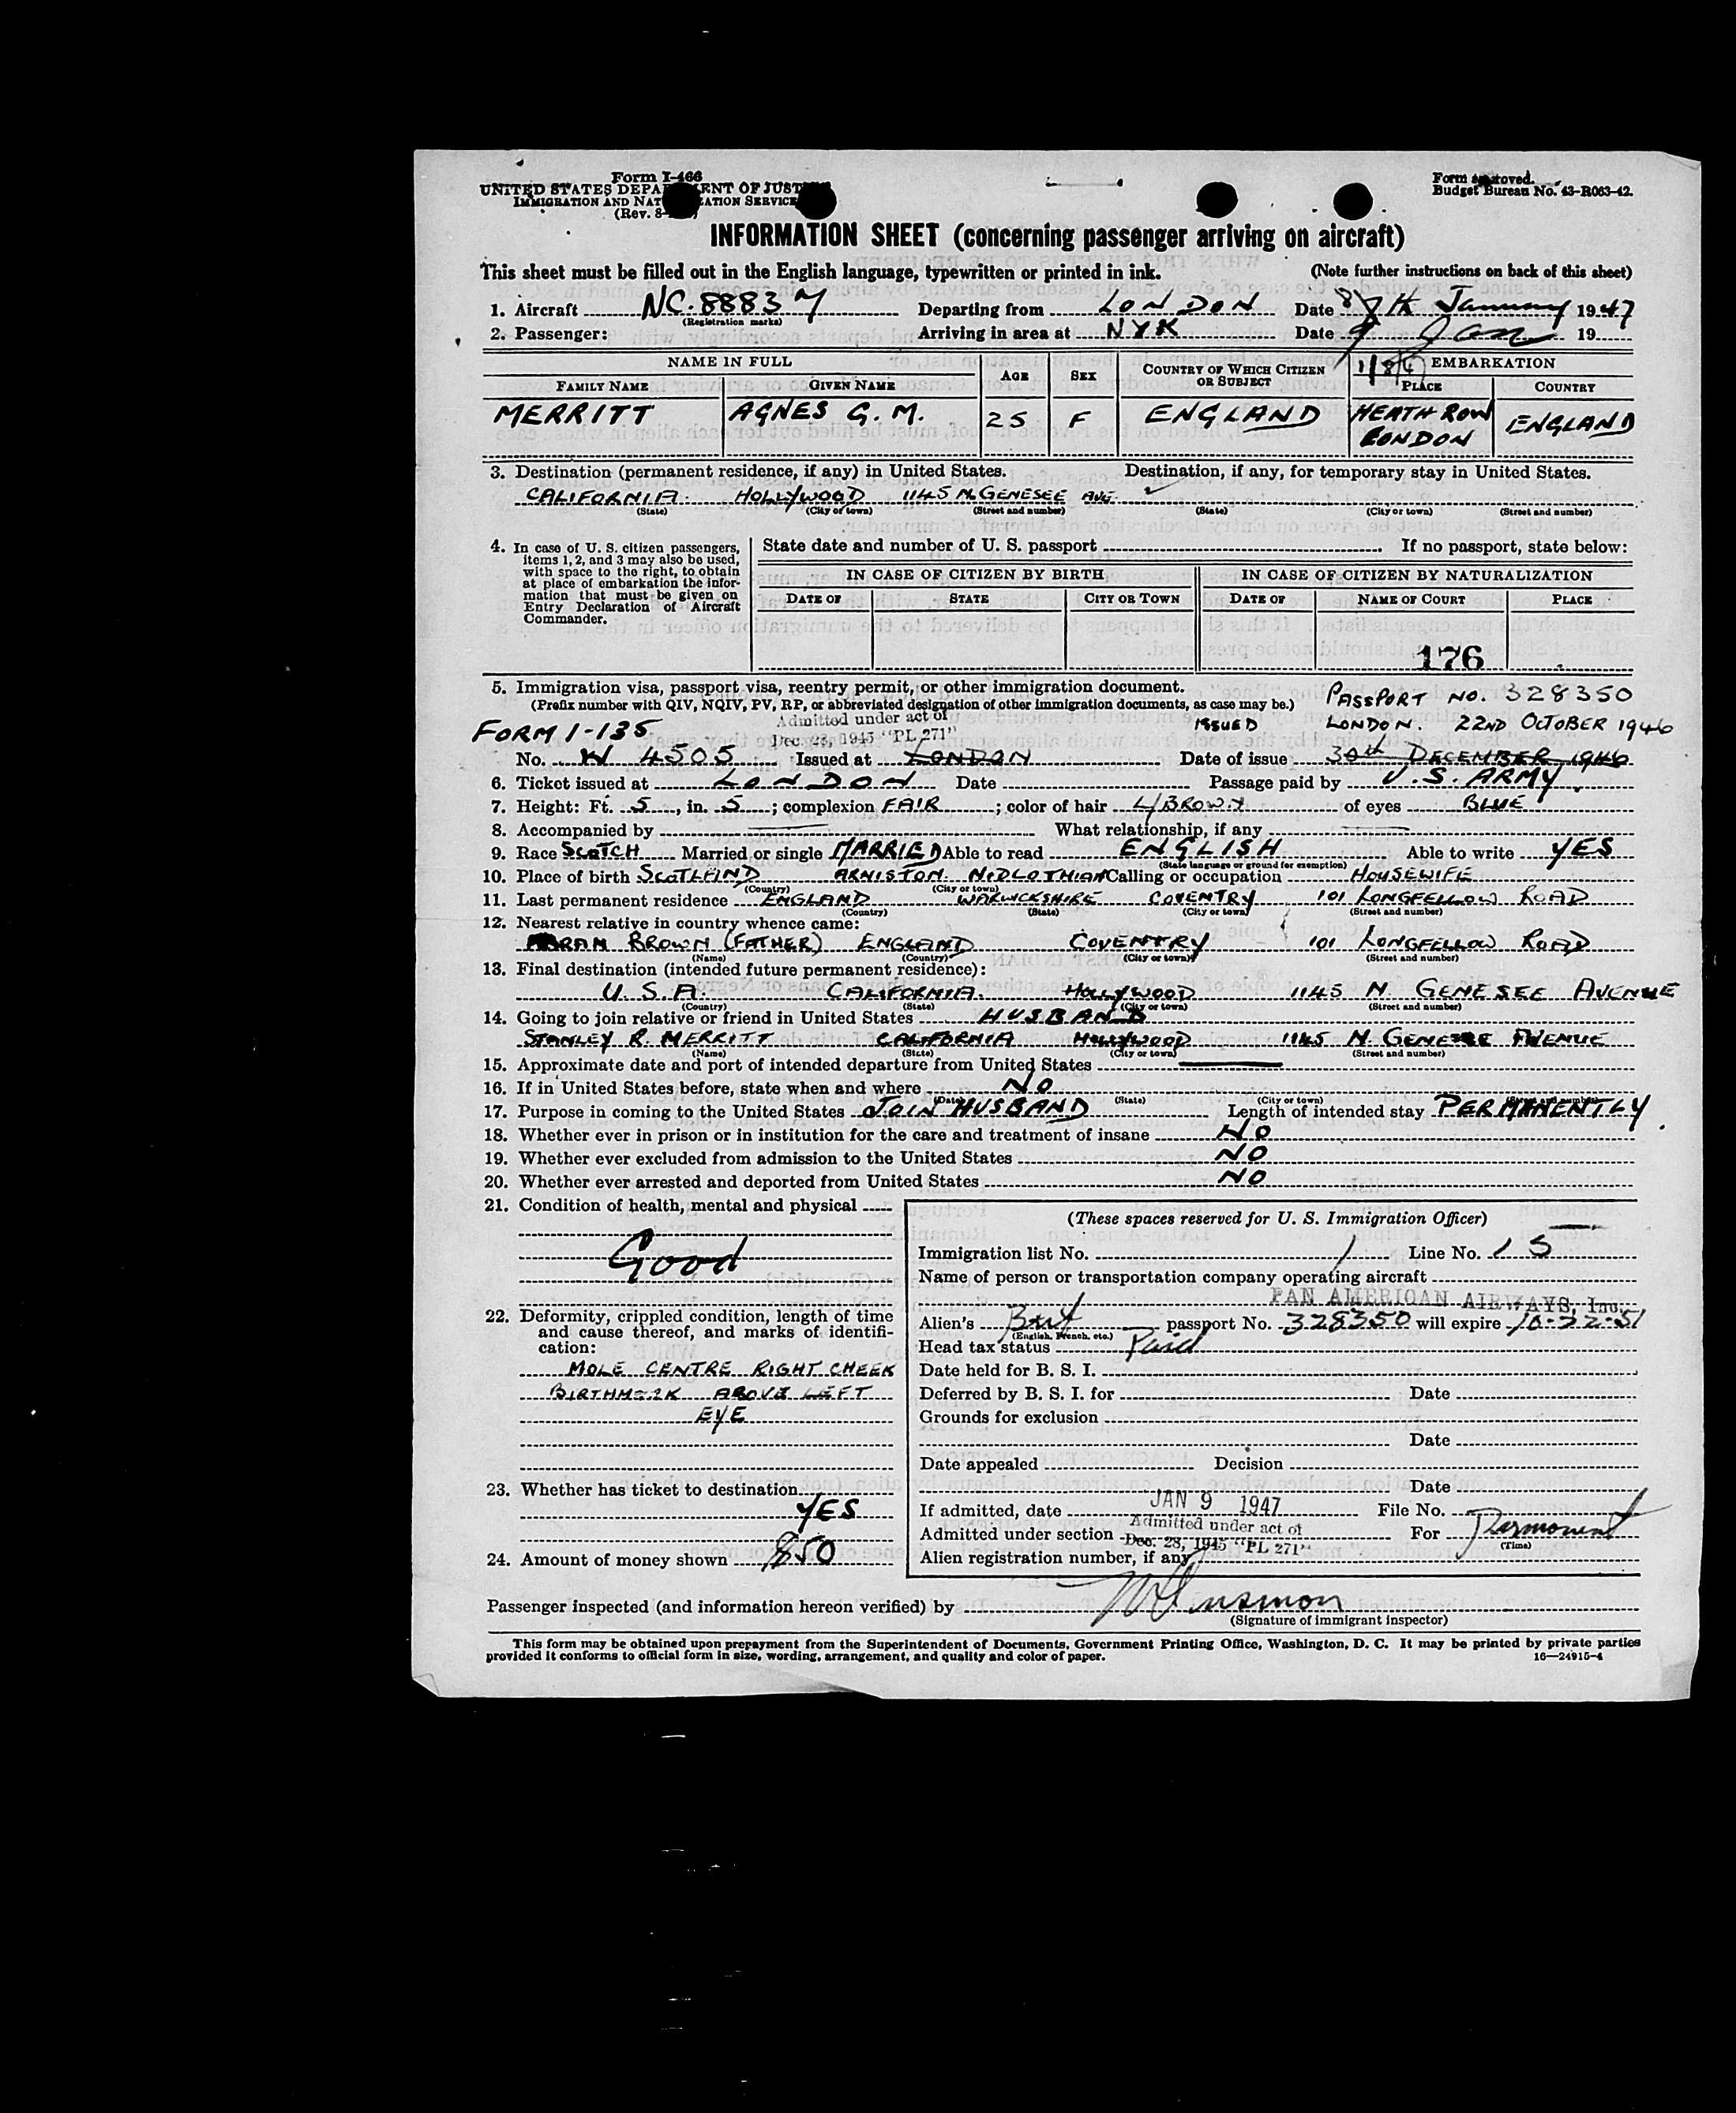 Form I-466
UNITED STATES DEPARTMENT OF JUSTICE
IMMIGRATION AND NATURALIZATION SERVICE
(Rev. 8-
Form approved.
Budget Bureau No. 43-R063-42.
INFORMATION SHEET (concerning passenger arriving on aircraft)
This sheet must be filled out in the English language, typewritten or printed in ink. (Note further instructions on back of this sheet)
1. Aircraft NC-88837 Departing from LONDON Date 8 TH January 1947
(Registration marks)
2. Passenger: Arriving in area at NYK Date 9 Jan 19
NAME IN FULL AGE SEX COUNTRY OF WHICH CITIZEN OR SUBJECT EMBARKATION
FAMILY NAME GIVEN NAME PLACE COUNTRY
MERRITT AGNES G. M. 25 F ENGLAND HEATH ROW LONDON ENGLAND
3. Destination (permanent residence, if any) in United States. Destination, if any, for temporary stay in United States.
CALIFORNIA. HOLLYWOOD 1145 N. GENESEE AVE.
(State) (City or town) (Street and number) (State) (City or town) (Street and number)
4. In case of U. S. citizen passengers, items 1, 2, and 3 may also be used, with space to the right, to obtain at place of embarkation the information that must be given on Entry Declaration of Aircraft Commander.
State date and number of U. S. passport If no passport, state below:
IN CASE OF CITIZEN BY BIRTH IN CASE OF CITIZEN BY NATURALIZATION
DATE OF STATE CITY OR TOWN DATE OF NAME OF COURT PLACE
176
5. Immigration visa, passport visa, reentry permit, or other immigration document. PASSPORT NO. 328350
(Prefix number with QIV, NQIV, PV, RP, or abbreviated designation of other immigration documents, as case may be.)
ISSUED LONDON. 22ND OCTOBER 1946
FORM I-135
Admitted under act of
Dec. 28, 1945 "PL 271"
No. W 4505 Issued at LONDON Date of issue 30th DECEMBER 1946
6. Ticket issued at LONDON Date Passage paid by U.S. ARMY.
7. Height: Ft. 5, in. 5; complexion FAIR; color of hair L/BROWN of eyes BLUE
8. Accompanied by What relationship, if any
9. Race SCOTCH Married or single MARRIED Able to read ENGLISH Able to write YES
(State language or ground for exemption)
10. Place of birth SCOTLAND ARNISTON MIDLOTHIAN Calling or occupation HOUSEWIFE
(Country) (City or town)
11. Last permanent residence ENGLAND WARWICKSHIRE COVENTRY 101 LONGFELLOW ROAD
(Country) (State) (City or town) (Street and number)
12. Nearest relative in country whence came:
BROWN (FATHER) ENGLAND COVENTRY 101 LONGFELLOW ROAD
(Name) (Country) (City or town) (Street and number)
13. Final destination (intended future permanent residence):
U.S.A. CALIFORNIA. HOLLYWOOD 1145 N. GENESEE AVENUE
(Country) (State) (City or town) (Street and number)
14. Going to join relative or friend in United States HUSBAND
STANLEY R. MERRITT CALIFORNIA HOLLYWOOD 1145 N. GENESEE AVENUE
(Name) (State) (City or town) (Street and number)
15. Approximate date and port of intended departure from United States
16. If in United States before, state when and where NO
(Date) (State) (City or town) (Street and number)
17. Purpose in coming to the United States JOIN HUSBAND Length of intended stay PERMANENTLY.
18. Whether ever in prison or in institution for the care and treatment of insane NO
19. Whether ever excluded from admission to the United States NO
20. Whether ever arrested and deported from United States NO
21. Condition of health, mental and physical
Good
22. Deformity, crippled condition, length of time and cause thereof, and marks of identification:
MOLE CENTRE RIGHT CHEEK
BIRTHMARK ABOVE LEFT
EYE
23. Whether has ticket to destination
YES
24. Amount of money shown $50
(These spaces reserved for U. S. Immigration Officer)
Immigration list No. 1 Line No. 15
Name of person or transportation company operating aircraft
PAN AMERICAN AIRWAYS, Inc.
Alien's Brit passport No. 328350 will expire 10-22-51
(English, French, etc.)
Head tax status Paid
Date held for B. S. I.
Deferred by B. S. I. for Date
Grounds for exclusion
Date
Date appealed Decision
Date
If admitted, date JAN 9 1947 File No.
Admitted under section Admitted under act of Dec. 28, 1945 "PL 271" For Permanent
(Time)
Alien registration number, if any
Passenger inspected (and information hereon verified) by
(Signature of immigrant inspector)
This form may be obtained upon prepayment from the Superintendent of Documents, Government Printing Office, Washington, D. C. It may be printed by private parties
provided it conforms to official form in size, wording, arrangement, and quality and color of paper. 16—24915-4